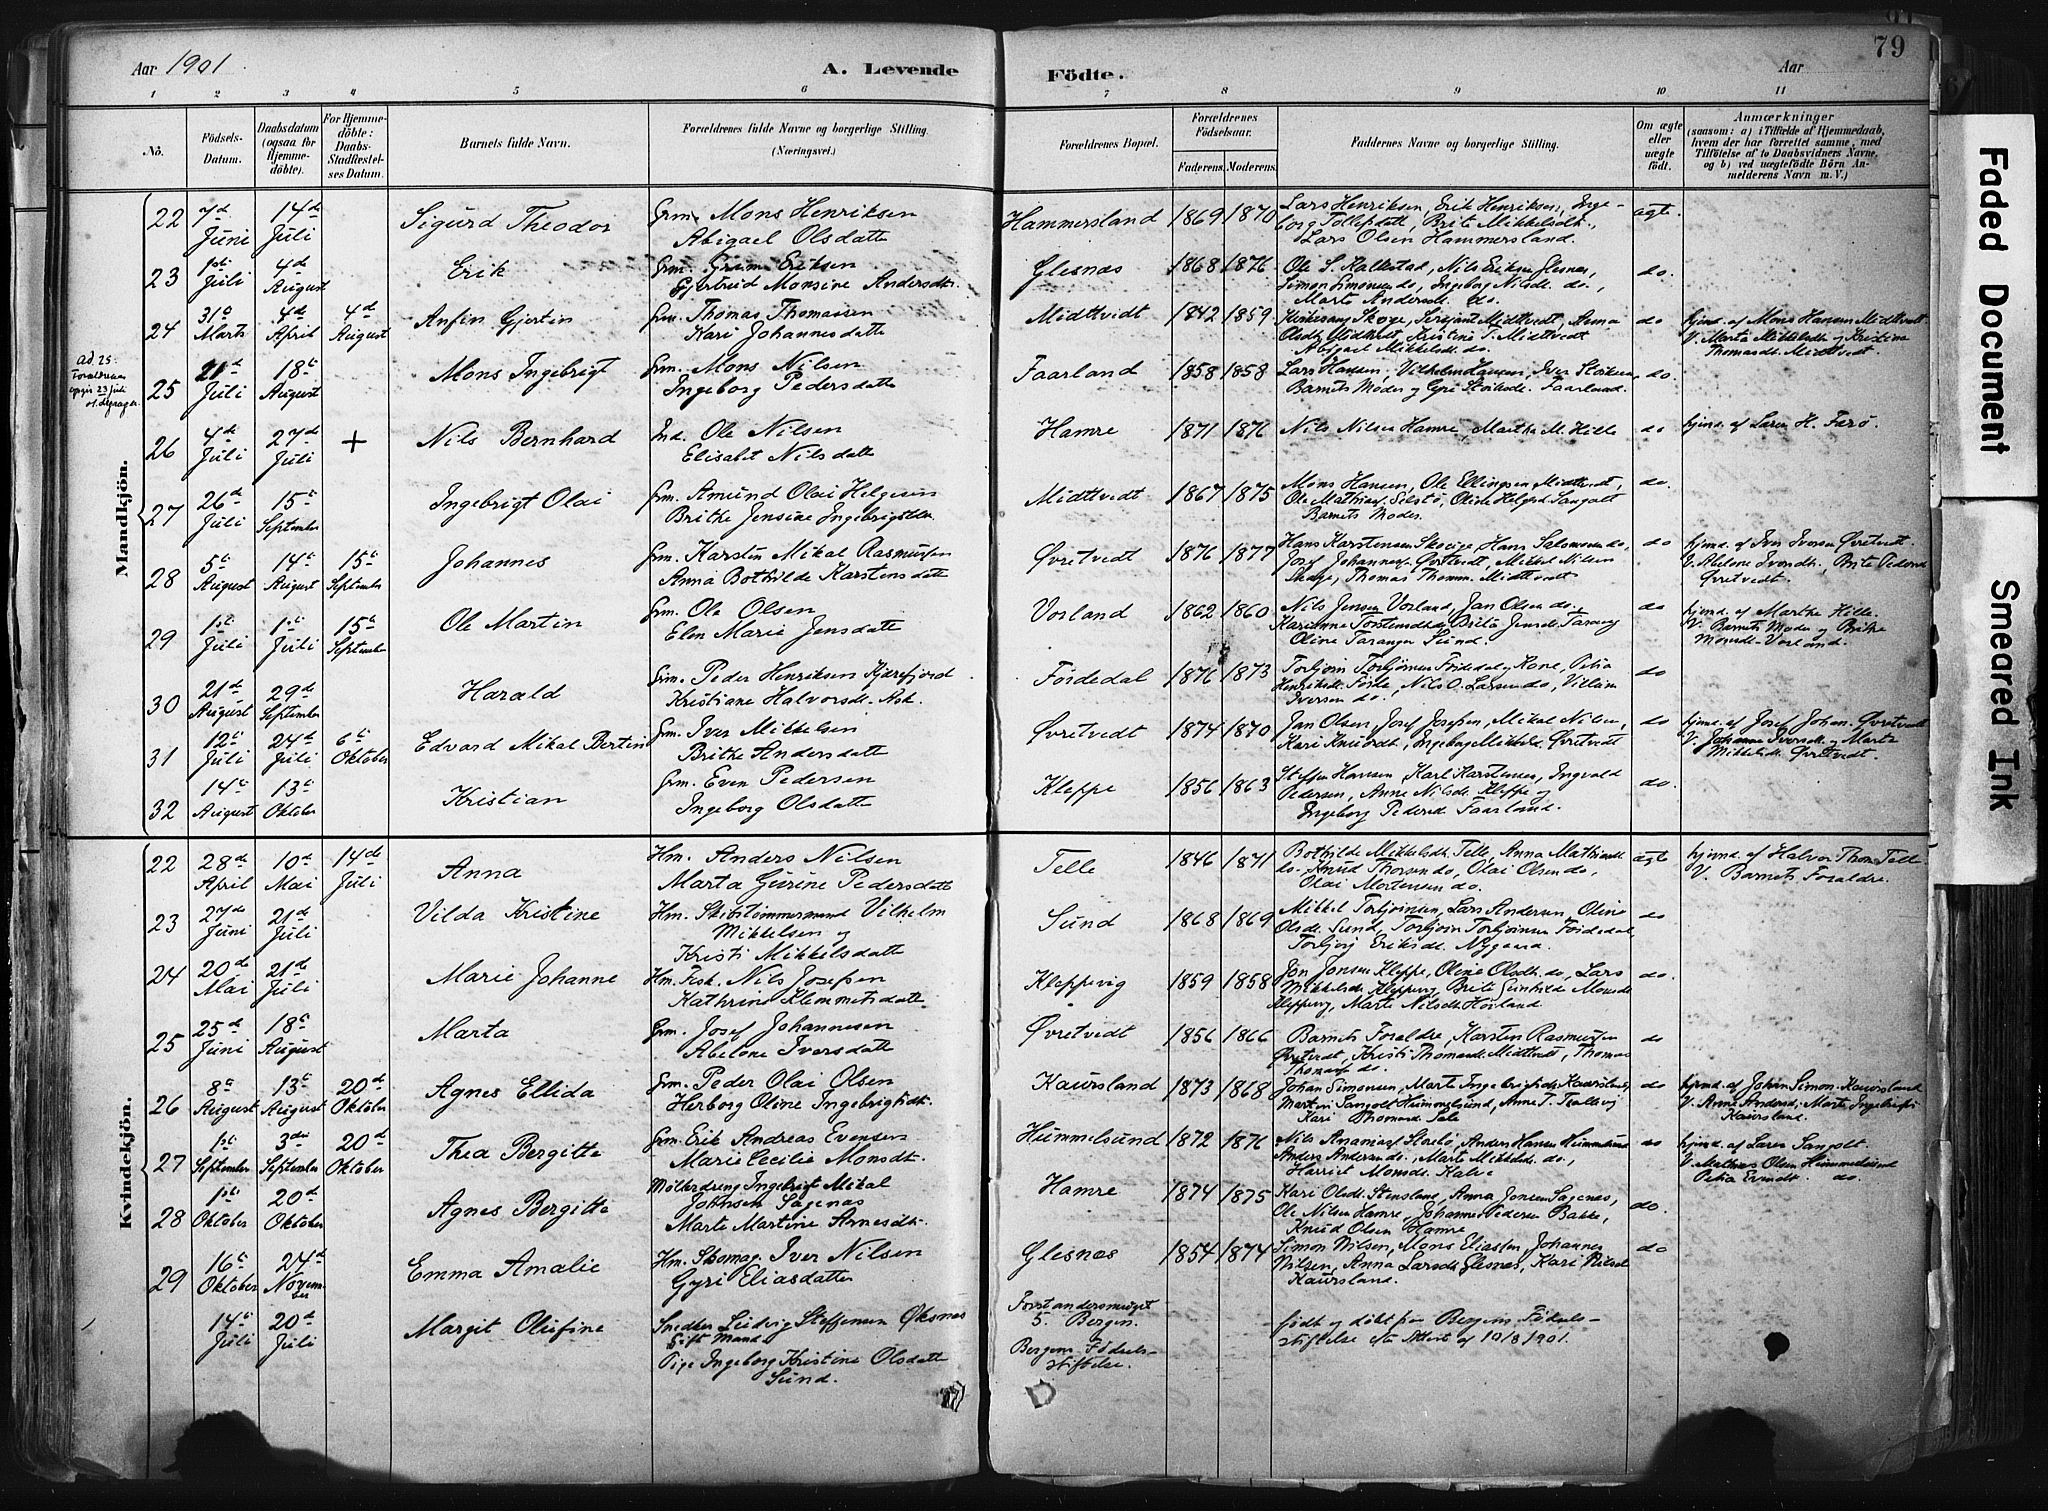 Aar 1901
A. Levende
Födte.
Aar
79
1 2 3 4 5 6 7 8 9 10 11
No.
Födsels-
Datum.
Daabsdatum
(ogsaa for
Hjemme-
döbte).
For Hjemme-
döbte:
Daabs-
Stadfæstel-
ses Datum.
Barnets fulde Navn.
Forældrenes fulde Navne og borgerlige Stilling.
(Næringsvei.)
Forældrenes Bopæl.
Forældrenes
Födselsaar.
Faderens. Moderens.
Faddernes Navne og borgerlige Stilling.
Om ægte
eller
uægte
födt.
Anmærkninger
(saasom: a) i Tilfælde af Hjemmedaab,
hvem der har forrettet samme, med
Tilföielse af to Daabsvidners Navne,
og b) ved uægtefödte Börn An-
melderens Navn m. V.)
Mandkjön.
22 7de Juni 14de Juli Sigurd Theodor Grm. Mons Henriksen
Abigael Olsdatte
Hammersland 1869 1870 Lars Henriksen, Erik Henriksen, Inge-
borg Tollefsdatt, Brite Mikkelsdt.,
Lars Olsen Hammersland.
ægte.
23 1ste Juli 4de August Erik Grm. Grim Eriksen
Gjertrud Monsine Andersdt.
Glesnæs 1868 1876 Ole S. Kalkestad, Nils Eriksen Glesnes,
Simon Simonsen do, Ingeborg Nilsdt. do.,
Marte Andersdt. do.
do.
24 31te Marts 4de April 4de August Anfin Gjertin Grm. Thomas Thomassen
Kari Johannesdatte
Midttvedt 1842 1859 Skoge, Midttvedt, Anna
Olsdt. Midttvedt, Kristine T. Midttvedt
Abigael Mikkelsdt. do.
do hjemd. af Mons Hansen Midttvedt
V. Marta Mikkelsdt. og Kristine
Thomasdt. Midttvedt.
ad 25:
Forældrene
25 21de Juli 18de August Mons Ingebrigt Grm. Mons Nilsen
Ingeborg Pedersdatte
Faarland 1858 1858 Lars Hansen, Vilhelm Larsen, Iver
Barnets Moder og Gyri Faarland.
do.
26 4de Juli 27de Juli + Nils Bernhard Ind. Ole Nilsen
Elisabet Nilsdatte
Hamre 1871 1876 Nils Nilsen Hamre, Marthe M. Hille do hjemd. af Laren H. Færø.
27 26de Juli 15de September Ingebrigt Olai Grm. Amund Olai Helgesen
Brithe Jensine Ingebrigtsdtr.
Midttvedt 1867 1875 Mons Hansen, Ole Ellingsen Midttvedt,
Ole Mathias Selstø, Oline Helgesd. Sangolt
Barnets Moder.
do.
28 5te August 14de August 15de September Johannes Grm. Karsten Mikal Rasmussen
Anna Bothilde Karstensdatt
Øvretvedt 1876 1877 Hans Karstensen Skooge, Hans Salomonsen do,
Josef Johannes Øvretvedt, Mikkel Nilsen
Skoge, Thomas Thomsen Midttvedt
do hjemd. af Iver Iversen Øvretvedt.
V. Abelone Iversdt., Brite Pedersd
Øvretvedt.
29 1ste Juli 1ste Juli 15de September Ole Martin Grm. Ole Olsen
Elen Marie Jensdatte
Vorland 1862 1860 Nils Jensen Vorland, Jan Olsen do.,
Karianne Torstensdt. Brita Jensdt.
Oline Taranger Sund.
do hjemd. af Marthe Hille.
V. Barnets Moder og Brithe
Monsdt. Vorland.
30 21de August 29de September Harald Grm. Peder Henriksen Kjærefjord
Kristiane Halvorsdt. Ask.
Fördedal 1876 1873 Torbjörn Torbjörnsen Fördedal, Kone, Petra
Henriksdt. Förde, Nils O. Larsen do, Villian
Iversen do.
do
31 12te Juli 24de Juli 6te Oktober Edvard Mikal Bertin Grm. Iver Mikkelsen
Brithe Andersdatte
Øvretvedt 1874 1870 Jan Olsen, Josef Josefsen, Mikal Nilsen,
Kari Knudsdt., Ingeborg Mikkelsd. Øvretvedt
do hjemd. af Josef Johan. Øvretvedt
V. Johanne Iversdt. og Marta
Mikkelsdt. Øvretvedt.
32 14de August 13de Oktober Kristian Grm. Even Pedersen
Ingeborg Olsdatte
Kleppe 1856 1863 Steffen Hansen, Karl Karstensen, Ingvald
Pedersen, Anne Nilsdt. Kleppe og
Ingeborg Pedersd. Faarland.
do.
Kvindekjön.
22 28de April 10de Mai 14de Juli Anna Hm. Anders Nilsen
Marta Gurine Pedersdatte
Telle 1846 1871 Bothilde Mikkelsdt. Telle, Anna Mathiasdt
do. Knud Thorsen do, Olai Olsen do,
Olai Mortensen do.
ægte hjemd. af Halvor Thom. Telle
V. Barnets Foraldre.
23 27de Juni 21de Juli Vilda Kristine Hm. Skibstömmermand Vilhelm
Mikkelsen og
Kristi Mikkelsdatte
Sund 1868 1869 Mikkel Torbjörnsen, Lars Andersen, Oline
Olsdt. Sund, Torbjörn Torbjörnsen Fördedal,
Torbjörg Eriksdt. Nygaard.
do
24 20de Mai 21de Juli Marie Johanne Hm. Fisk. Nils Josefsen
Kathrine Klemmetsdatte
Kleppevig 1859 1858 Jön Jonsen Kleppe, Oline Olsdt. do, Lars
Mikkelsdt. Kleppevig, Brite Monsdt
Kleppevig, Marte Nilsdt. Horland.
do.
25 25de Juni 18de August Marta Grm. Josef Johannesen
Abelone Iversdatte
Øvretvidt 1856 1866 Barnets Foraldre, Karsten Rasmussen
Øvretvedt, Kristi Thomasdt. Midttvedt, Thomas
Thomassen do.
do
26 8de August 13de August 20de Oktober Agnes Ellida Grm. Peder Olai Olsen
Herborg Oline Ingebrigtsdt.
Kaursland 1873 1868 Johan Simonsen, Marte Ingebrigtsdt. Kaursland,
Martin Sangolt Hummelsund, Anne T.
Kari Thomasd. Tele
do hjemd. af Johan Simon. Kaursland
V. Anne Andersd., Marte Ingebrigts
Kaursland.
27 1ste September 3die September 20de Oktober Thea Bergitte Grm. Erik Andreas Evensen
Marie Cecilie Monsdt.
Hummelsund 1872 1876 Nils Storebö, Anders Hansen Hummelsund
Anders Andersen do., Marte Mikkelsd. do.,
Harriet Monsdt. Kalve
do hjemd. af Laren Sangolt.
V. Mathias Olsen Himmelsund
Petra Evensdt. do.
28 1ste Oktober 20de Oktober Agnes Bergitte Möllerdreng Ingebrigt Mikal
Johnsen Sagenæs
Marte Martine Arnesdt.
Hamre 1874 1875 Kari Olsdt. Stensland, Anna Jonsen Sagenæs,
Ole Nilsen Hamre, Johannes Pedersen Bakke,
Knud Olsen Hamre
do.
29 16de Oktober 24de November Emma Amalie Hm. Skomag. Iver Nilsen
Gyri Eliasdatte
Glesnæs 1854 1874 Simon Nilsen, Mons Eliassen, Johannes
Nilsen, Anna Larsdt. Glesnes, Kari Nilsdt
Kaursland.
do
14de Juli 20de Juli Margit Olufine Snedker Ludvig Steffensen Øksnes
Gift Mand.
Pige Ingeborg Kristine Olsdatte
Sund.
Forstandersmuget
5. Bergen.
Bergens Födsels-
stiftelse.
födt og döbt paa Bergens Födsels-
stiftelse efter Attest af 10/8 1901.
Faded Document
Smeared Ink